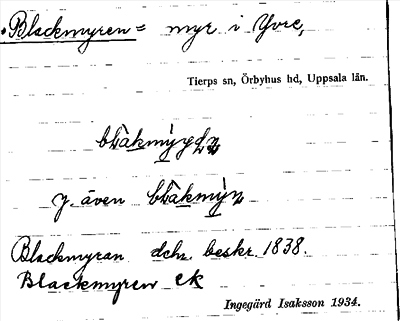 Blackmyren = myr i Yvre,
Tierps sn, Örbyhus hd, Uppsala län.
J. även
Blackmyran dchr. beskr. 1838.
Blackmyren ek
Ingegärd Isaksson 1934.